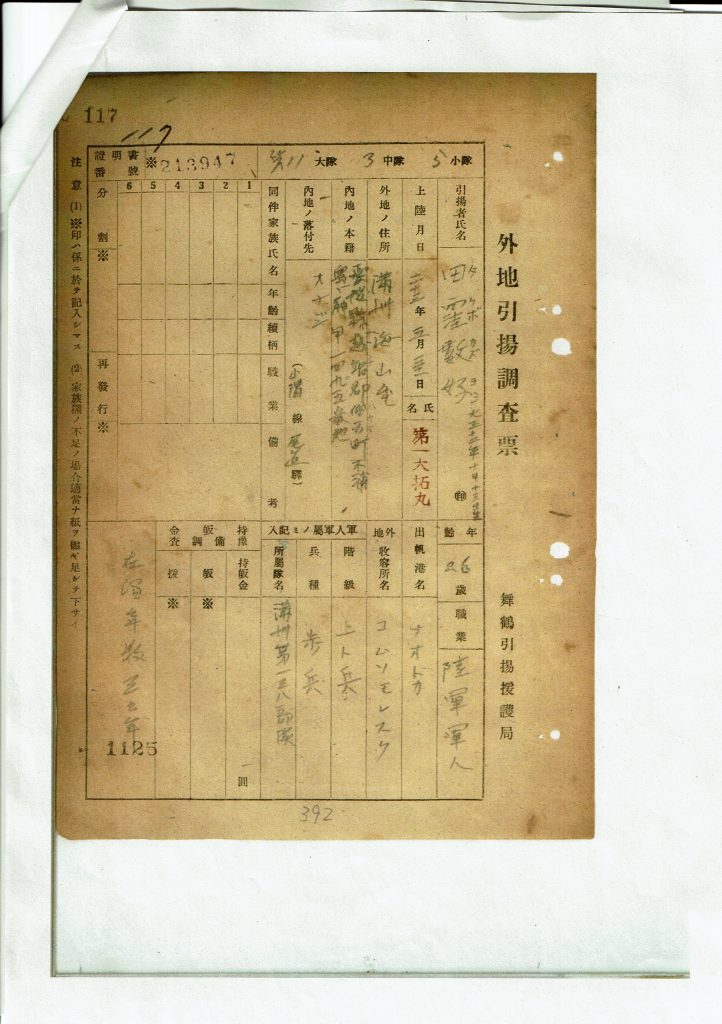 117
117
外地引揚調査票
舞鶴引揚援護局
第11 大隊 3 中隊 5 小隊
證明書番號 ※ 213947
引揚者氏名
タクボ カズヨシ
田窪數好
大正十二年十月十三日生
㊞
年齢 26歳
職業 陸軍軍人
上陸月日
二三年五月 日
船名
第一大拓丸
出帆港名 ナオトカ
外地ノ住所
滿州
外地收容所名 コムソモレスク
內地ノ本籍
愛媛縣越智郡
甲一四九五番地
內地ノ落付先
オナジ
(線 驛)
軍人軍屬ノミ記入
階級 上ト兵
兵種 歩兵
所屬隊名 滿州第一三八部隊
同伴家族氏名 年齢 續柄 職業 備考
1
2
3
4
5
6
持歸 鈑備 金調査
持鈑金
一圓
鈑 ※
拨 ※
分割※
再發行※
在 年数 年
1125
注意 (1) ※印ハ係ニ於テ記入シマス (2) 家族欄ノ不足ノ場合適當ナ紙ヲ繼ギ足シテ下サイ
392